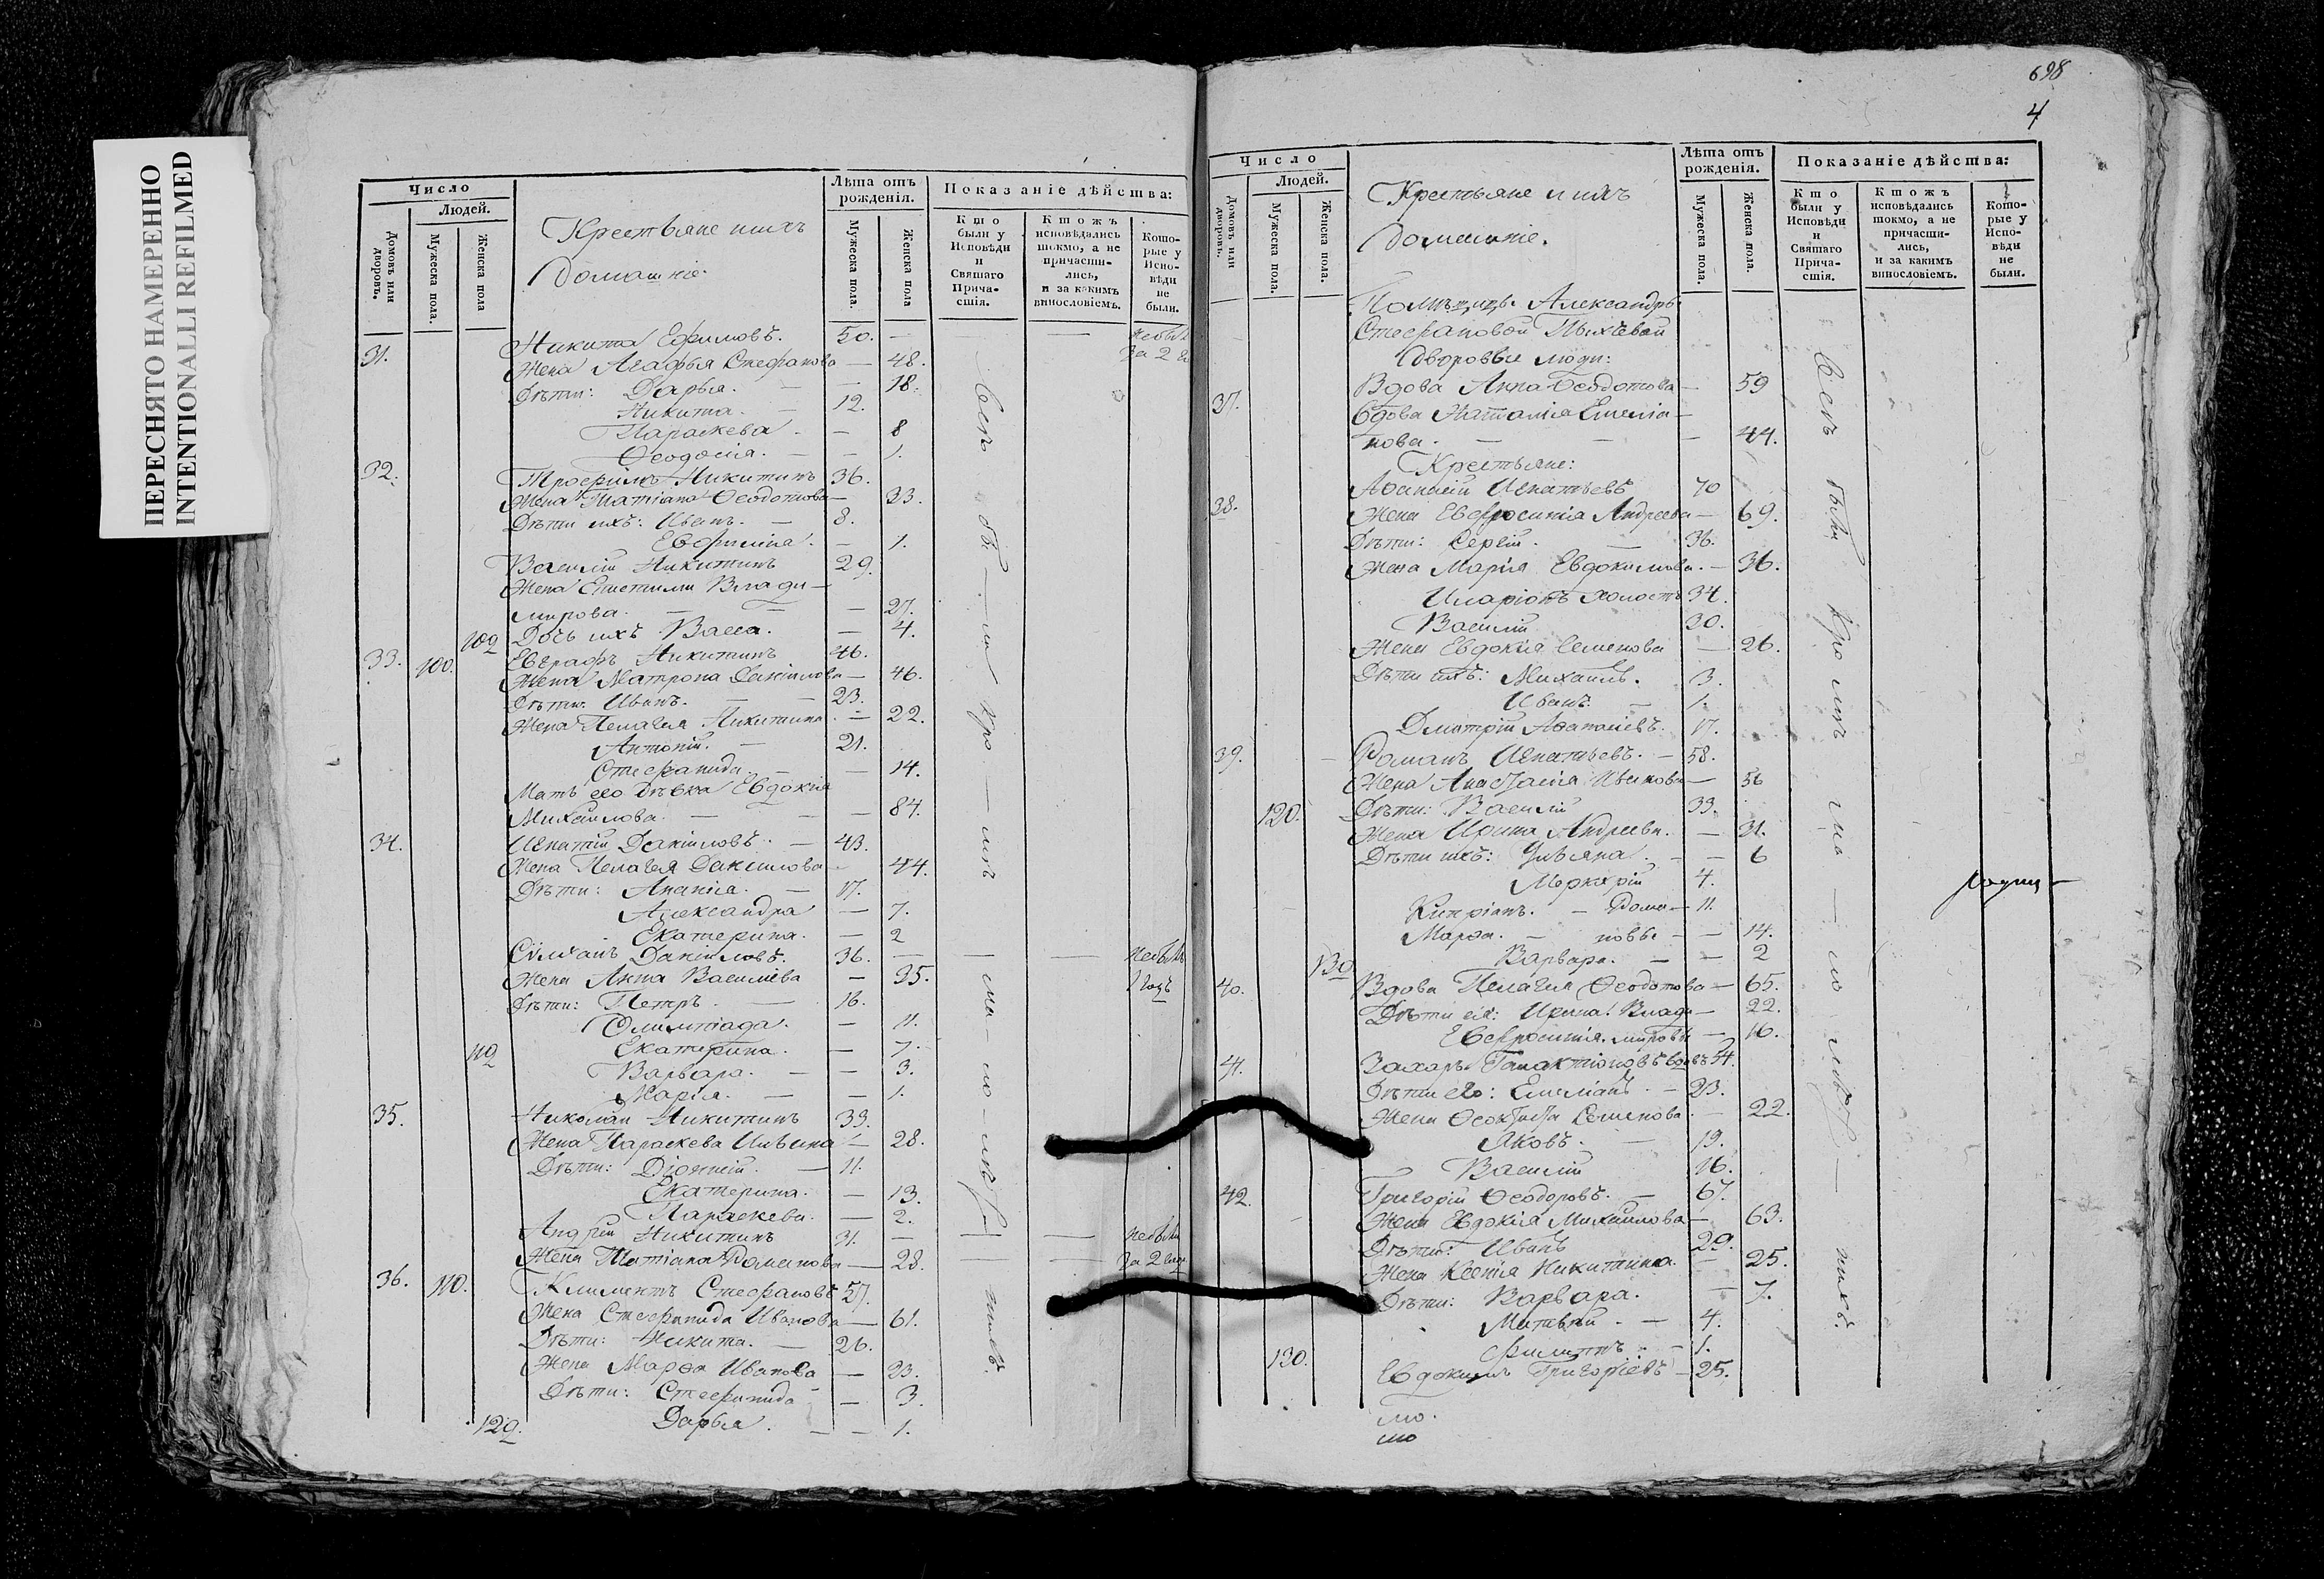 ПЕРЕСНЯТО НАМЕРЕННО
INTENTIONALLI REFILMED
Число
Людей.
Домовъ или дворовъ.
Мужеска пола.
Женска пола
Крестьяне и ихъ
домашніе.
Лѣта отъ рожденія.
Мужеска пола.
Женска пола
Показаніе дѣйства:
Кто были у Исповѣди и Святаго Причастія.
Ктожъ исповѣдались токмо, а не причастились, и за какимъ винословіемъ.
Которые у Исповѣди не были.
31. Никита Ефимовъ. 50. — — небылъ
Жена Агафья Стефанова — 48. за 2 го
Дѣти: Дарья. — — 18.
Никита. — 12.
Параскева. — 8
Ѳеодосія. — — 1.
32. Трофимъ Никитинъ 36.
Жена Татіана Ѳеодотова — 33.
Дѣти ихъ: Иванъ. — 8.
Евфимія. — 1.
Василій Никитинъ 29.
Жена Епистимія Влади-
мирова. — — — 27.
109 Дочь ихъ Васса. — 4.
33. 100. Евграфъ Никитинъ 46.
Жена Матрона Даніилова — 46.
Дѣти: Иванъ. — — 23.
Жена Пелагея Никитина — 22.
Антоній. — 21.
Стефанида. — — 14.
Мать его дѣвка Евдокія
Михайлова. — — — 84.
34. Игнатій Даніиловъ. — 43.
Жена Пелагея Данилова — 44.
Дѣти: Ананіа. — 17.
Александра — 7.
Екатерина. — 2
Данииловъ. 36. — — — небылъ
Жена Анна Васильева — 35. 1 годъ
Дѣти: Петръ. — 16.
Олимпіада. — 11.
119 Екатерина. — 7.
Варвара. — — 3.
Марія. — — 1.
35. Николай Никитинъ 33.
Жена Параскева Ильина — 28.
Дѣти: Діонисій. — 11.
Екатерина. — 13.
Параскева. — 2.
Андрей Никитинъ 31. — — — небылъ
Жена Татіана Романова — 28. — за 2 года
36. 110. Климентъ Стефановъ 57.
Жена Стефанида Иванова — 61.
Дѣти: Никита. — 26.
Жена Марѳа Иванова — 23.
Дѣти: Стефанида — 3.
129. Дарья. — — 1.
698
4
Число
Людей.
Домовъ или дворовъ.
Мужеска пола.
Женска пола.
Крестьяне и ихъ
домашніе.
Лѣта отъ рожденія.
Мужеска пола.
Женска пола.
Показаніе дѣйства:
Кто были у Исповѣди и Святаго Причастія.
Ктожъ исповѣдались токмо, а не причастились, и за какимъ винословіемъ.
Которые у Исповѣди не были.
Помѣщицы Александры
Стефановой
дворовые люди:
37. Вдова Анна Ѳеодотова — 59
Вдова Наталія Емелія-
нова. — — — 44.
Крестьяне:
38. Аѳанасій Игнатьевъ 70
Жена Евфросинія Андреева — 69.
Дѣти: Сергій. — 36.
Жена Марія Евдокимова. — 36.
Иларіонъ холостъ 34.
Василій 30.
Жена Евдокія Семенова — 26.
Дѣти ихъ: Михаилъ. 3.
Иванъ. — 1.
Дмитрій Аѳанасіевъ. 17.
39. Романъ Игнатьевъ. — 58.
Жена Анастасія Иванова — 56
120. Дѣти: Василій 33.
Жена Ирина Андреева. — 31.
Дѣти ихъ: Уліяна. — — 6
Меркурій 4.
Кипріанъ. — Рома- 11.
Марѳа. — новы — — 14.
139 Варвара. — — 2
40. Вдова Пелагея Ѳеодотова — 65.
Дѣти ея: Ирина. Влади- 22.
Евфросинія. мировы — 16.
41. Захаръ Галактіоновъ вдовъ 54.
Дѣти его: Емеліанъ. — 23.
Жена Ѳеоктиста Семенова. — 22.
Яковъ. — 19.
Василій 16.
42. Григорій Ѳеодоровъ. — 67.
Жена Евдокія Михайлова — 63.
Дѣти: Иванъ 29.
Жена Ксенія Никитина. — 25.
Дѣти: Варвара. — 7.
Матвѣй. — 4.
Филиппъ. — 1.
130. Евдокимъ Григоріевъ — 25.